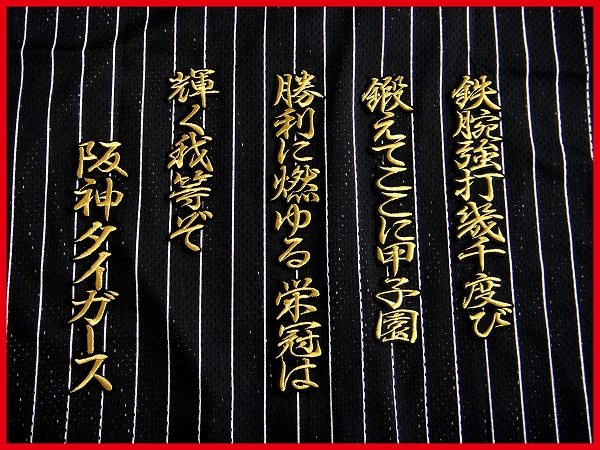 鉄腕強打幾千度び
鍛えてここに甲子園
勝利に燃ゆる栄冠は
輝く我等ぞ
阪神タイガース